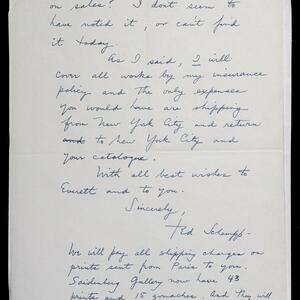 on sales? I don't seem to
have noted it, or can't find
it today.
As I said, I will
cover all works by my insurance
policy and the only expenses
you would have are shipping
from New York City and return
and to New York City and
your catalogue.
With all best wishes to
Everett and to you.
Sincerely,
Ted Schempp-
We will pay all shipping charges on
prints sent from Paris to you.
Saidenberg Gallery now have 43
prints and 15 gouaches. And they will